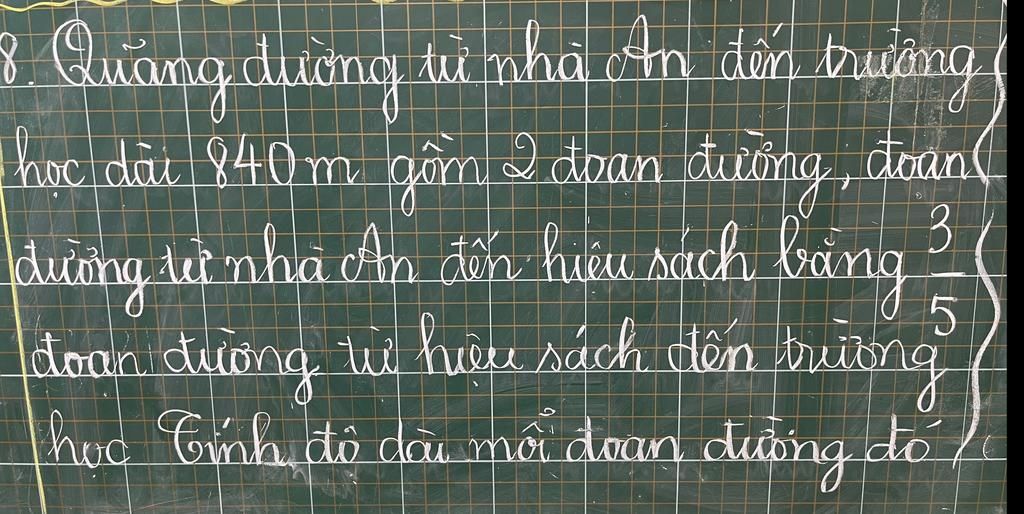 8. Quãng đường từ nhà An đến trường
học dài 840m gồm 2 đoạn đường, đoạn
đường từ nhà An đến hiệu sách bằng 3/5
đoạn đường từ hiệu sách đến trường
học Tính độ dài mỗi đoạn đường đó